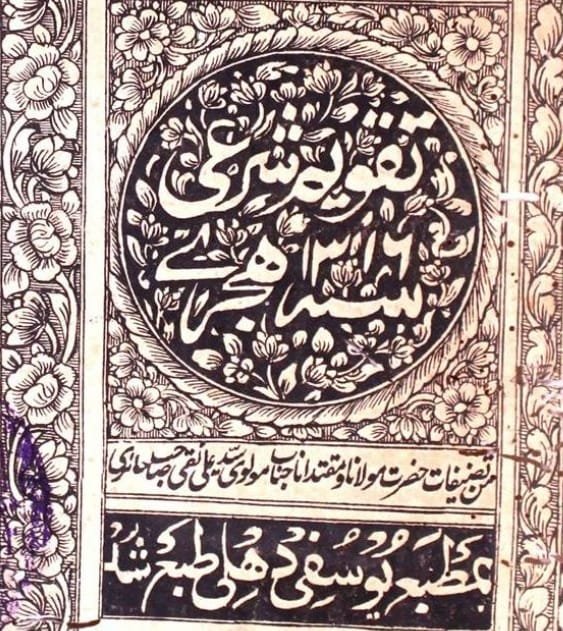 تقویم شرعی
۱۳۱۶
سنه هجرے
من تصنیفات حضرت مولانا و مقتدانا جناب مولوی سید علی نقی صاحب حائری
بمطبع یوسفی دهلی طبع شد